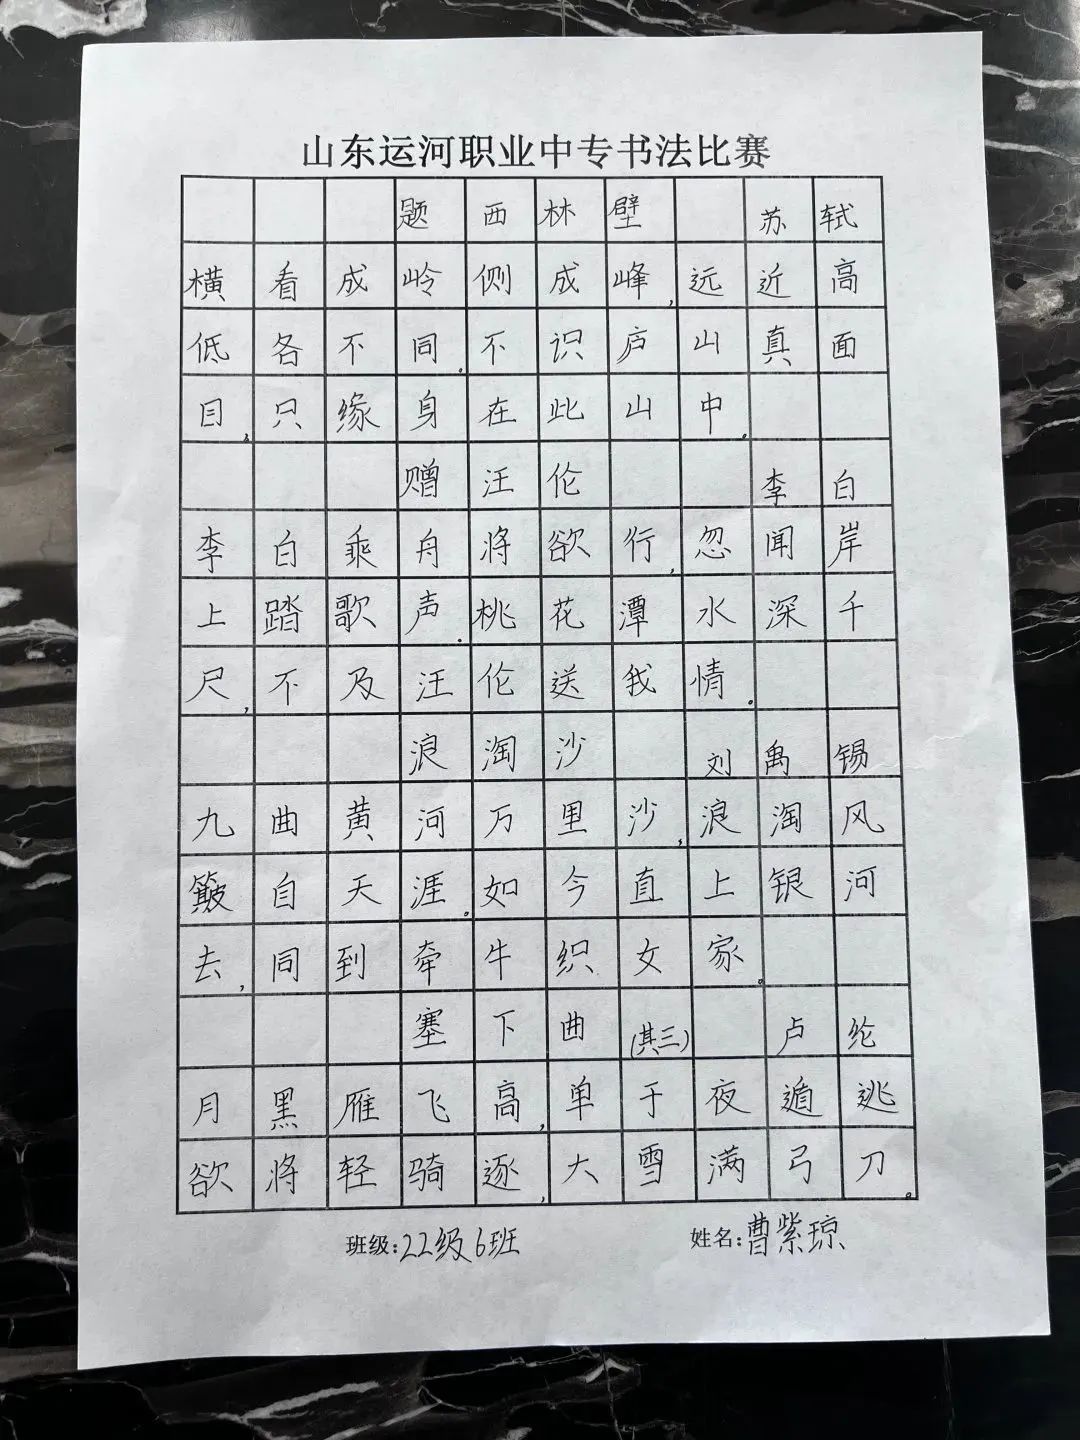 山东运河职业中专书法比赛
题西林壁 苏轼
横看成岭侧成峰,远近高
低各不同.不识庐山真面
目,只缘身在此山中.
赠汪伦 李白
李白乘舟将欲行,忽闻岸
上踏歌声.桃花潭水深千
尺,不及汪伦送我情.
浪淘沙 刘禹锡
九曲黄河万里沙,浪淘风
簸自天涯.如今直上银河
去,同到牵牛织女家.
塞下曲(其三) 卢纶
月黑雁飞高,单于夜遁逃
欲将轻骑逐,大雪满弓刀.
班级:22级6班 姓名:曹紫琼